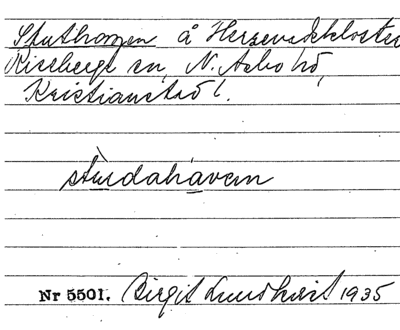 Stuthagen å Herrevadskloster
Riseberga sn, N. Asbo hd,
Kristianstad l.
studahavern
Nr 5501. Birgit Lundkvist 1935